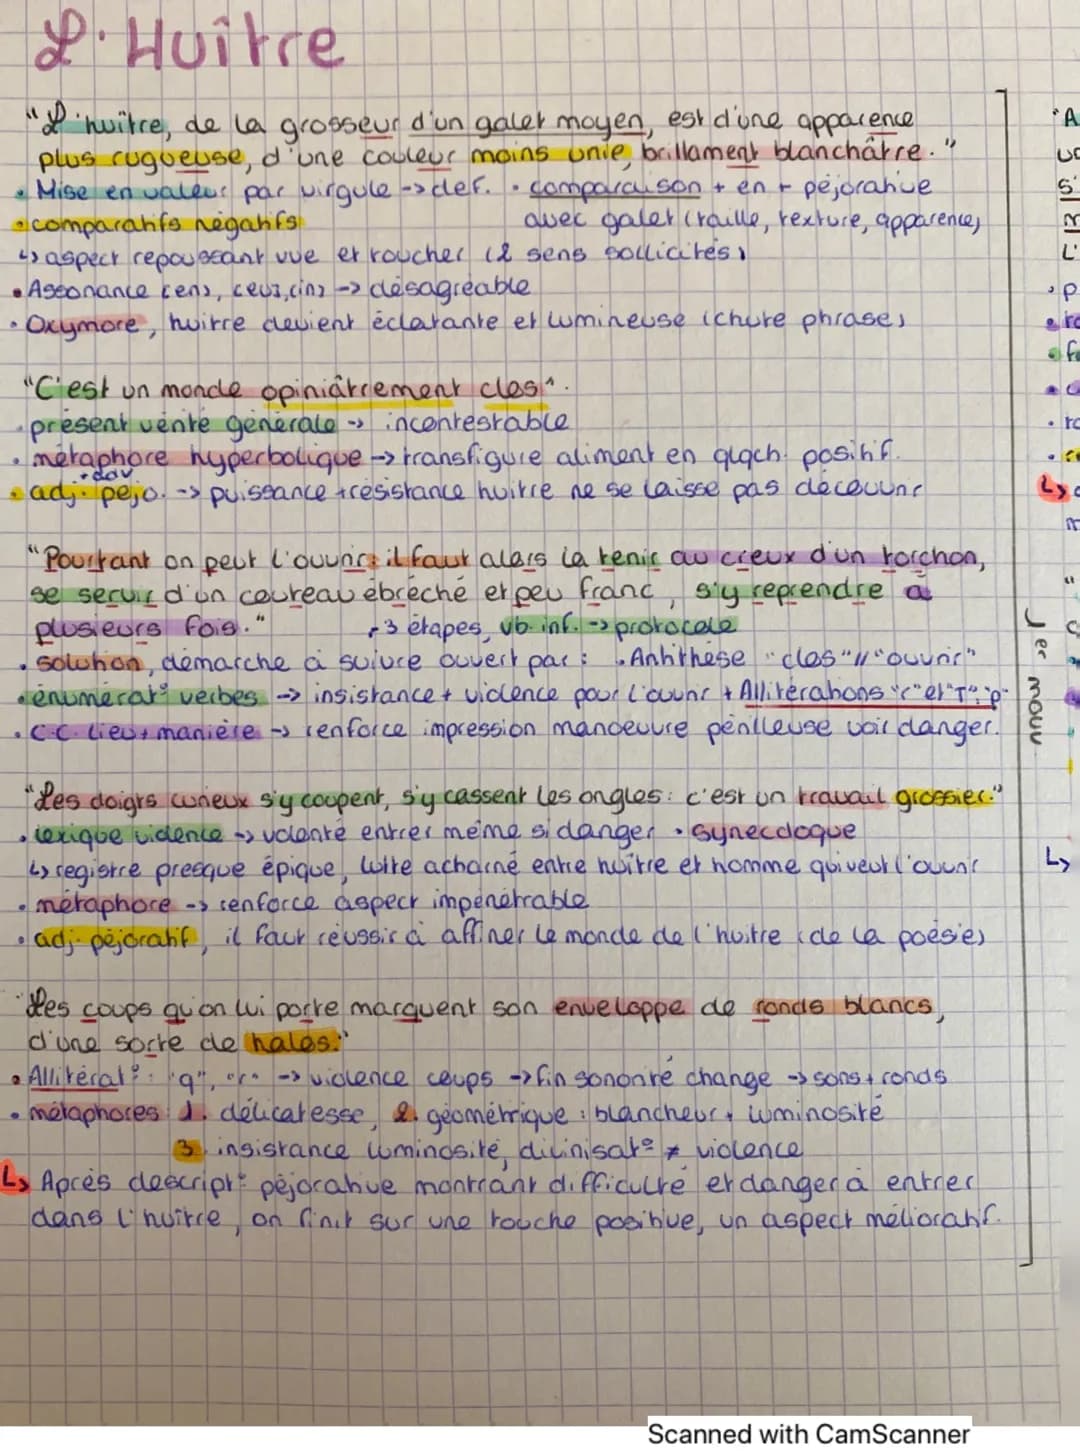 L'Huître
"L'huître, de la grosseur d'un galet moyen, est d'une apparence
plus rugueuse, d'une couleur moins unie, brillament blanchâtre."
• Mise en valeur par virgule -> def. • comparaison + en + péjorative
• comparatifs négatifs avec galet (taille, texture, apparence)
↳ aspect repoussant vue et toucher (2 sens sollicités)
• Assonance (en), (eu), (in) -> désagréable
• Oxymore, huitre devient éclatante et lumineuse (chute phrase)
"C'est un monde opiniâtrement clos".
• présent vérité générale -> incontestable
• métaphore hyperbolique -> transfigure aliment en qlqch. positif.
+ adv
• adj. péjo. -> puissance + résistance huitre ne se laisse pas découvrir
"Pourtant on peut l'ouvrir: il faut alors la tenir au creux d'un torchon,
se servir d'un couteau ébréché et peu franc, s'y reprendre à
plusieurs fois." 3 étapes, vb. inf. -> protocole
• solution, démarche à suivre ouvert par : • Anthithèse "clos" // "ouvrir"
• énumérat° verbes -> insistance + violence pour l'ouvrir + Allitérations "r" et "T", "p"
• C.C. lieu + manière -> renforce impression manoeuvre périlleuse voir danger.
"Les doigts curieux s'y coupent, s'y cassent les ongles: c'est un travail grossier."
• lexique violence -> volonté entrer même si danger • Synecdoque
↳ registre presque épique, lutte acharné entre huître et homme qui veut l'ouvrir
• métaphore -> renforce aspect impénétrable
• adj. péjoratif, il faut réussir à affiner le monde de l'huitre (de la poésie)
"Les coups qu'on lui porte marquent son enveloppe de ronds blancs,
d'une sorte de halos."
• Allitérat° : "q", "r" -> violence coups -> fin sonorité change -> sons + ronds
• métaphores : 1. délicatesse, 2. géométrique : blancheur + luminosité
3. insistance luminosité, divinisat° ≠ violence
↳ Après descript° péjorative montrant difficulté et danger à entrer
dans l'huître, on finit sur une touche positive, un aspect mélioratif.
1er mouv
Scanned with CamScanner